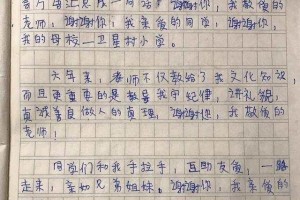 老师，谢谢你，我亲爱的同学，谢谢你，
我的母校—卫星村小学。
六年里，老师不仅教给了我文化知识
而且更重要的是教导我守纪律，讲礼貌，
真诚善良做人的真理，谢谢你，我敬爱的
老师！
同学们和我手拉手，互助友爱，一路
走来，亲如兄弟姐妹。谢谢你，我亲爱的